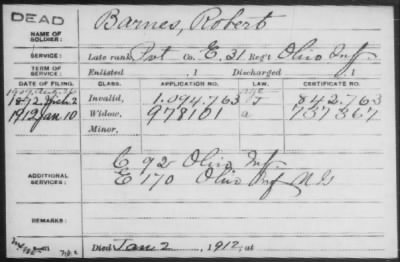 DEAD
NAME OF SOLDIER: Barnes, Robert
SERVICE: Late rank, Pvt Co. E. 31 Reg't Ohio Inf.
TERM OF SERVICE: Enlisted , 1 Discharged , 1
DATE OF FILING. CLASS. APPLICATION NO. LAW. CERTIFICATE NO.
Invalid, 1.094.763 842.763
1912 Jan 10 Widow, 978101 a 737367
Minor,
ADDITIONAL SERVICES: C 92 Ohio Inf.
E 170 Ohio Inf N.G
REMARKS:
Died Jan 2 , 1912, at